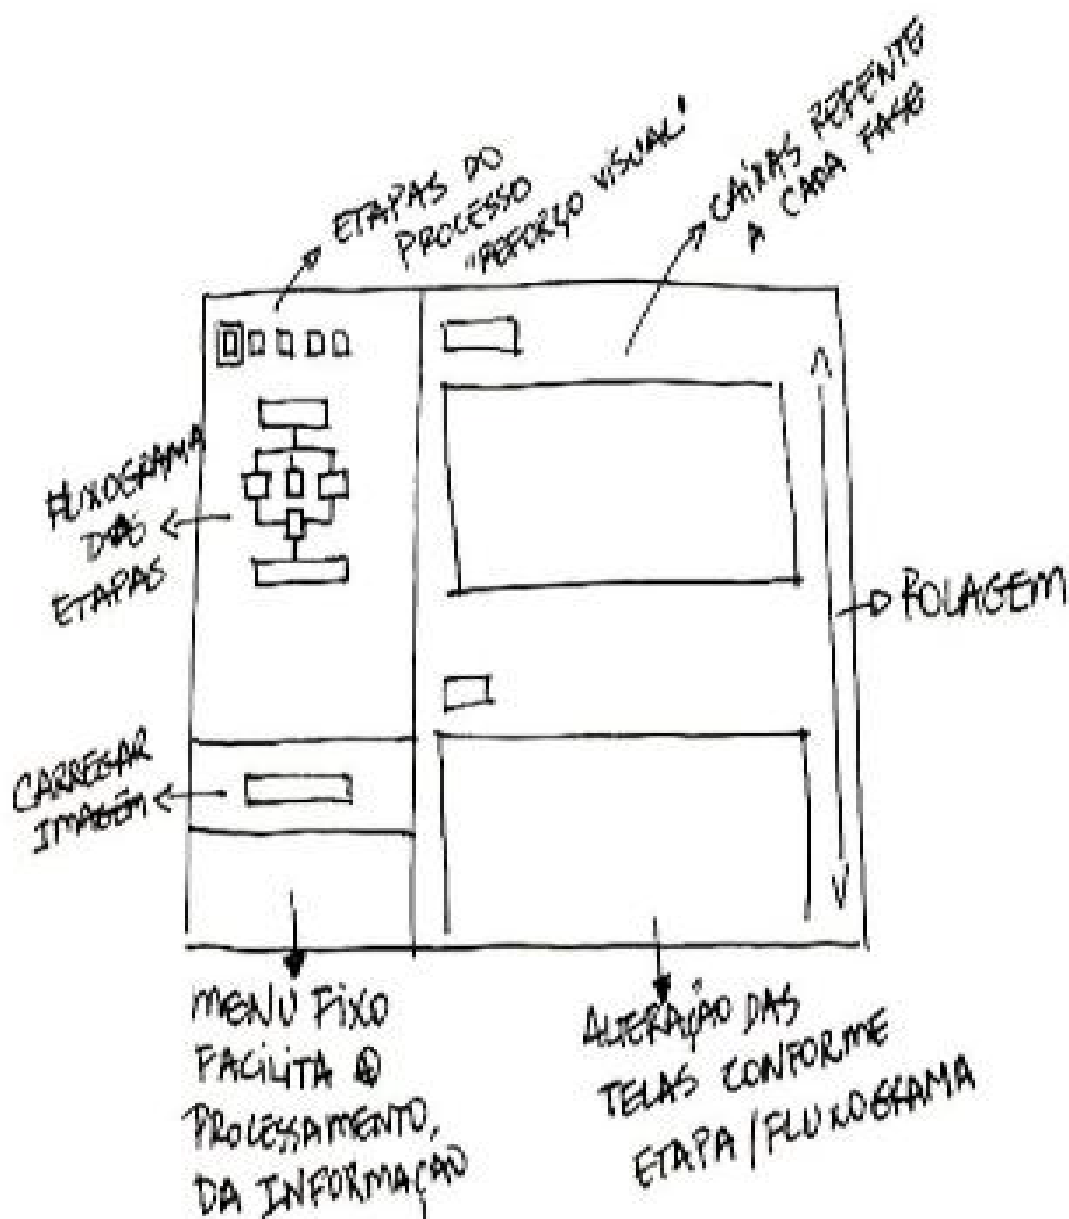 ETAPAS DO
PROCESSO
"REFORÇO VISUAL"
CAIXAS REFENTE
A CADA FASE
FLUXOGRAMA
DAS
ETAPAS
ROLAGEM
CARREGAR
IMAGEM
MENU FIXO
FACILITA O
PROCESSAMENTO,
DA INFORMAÇÃO
ALTERAÇÃO DAS
TELAS CONFORME
ETAPA/FLUXOGRAMA